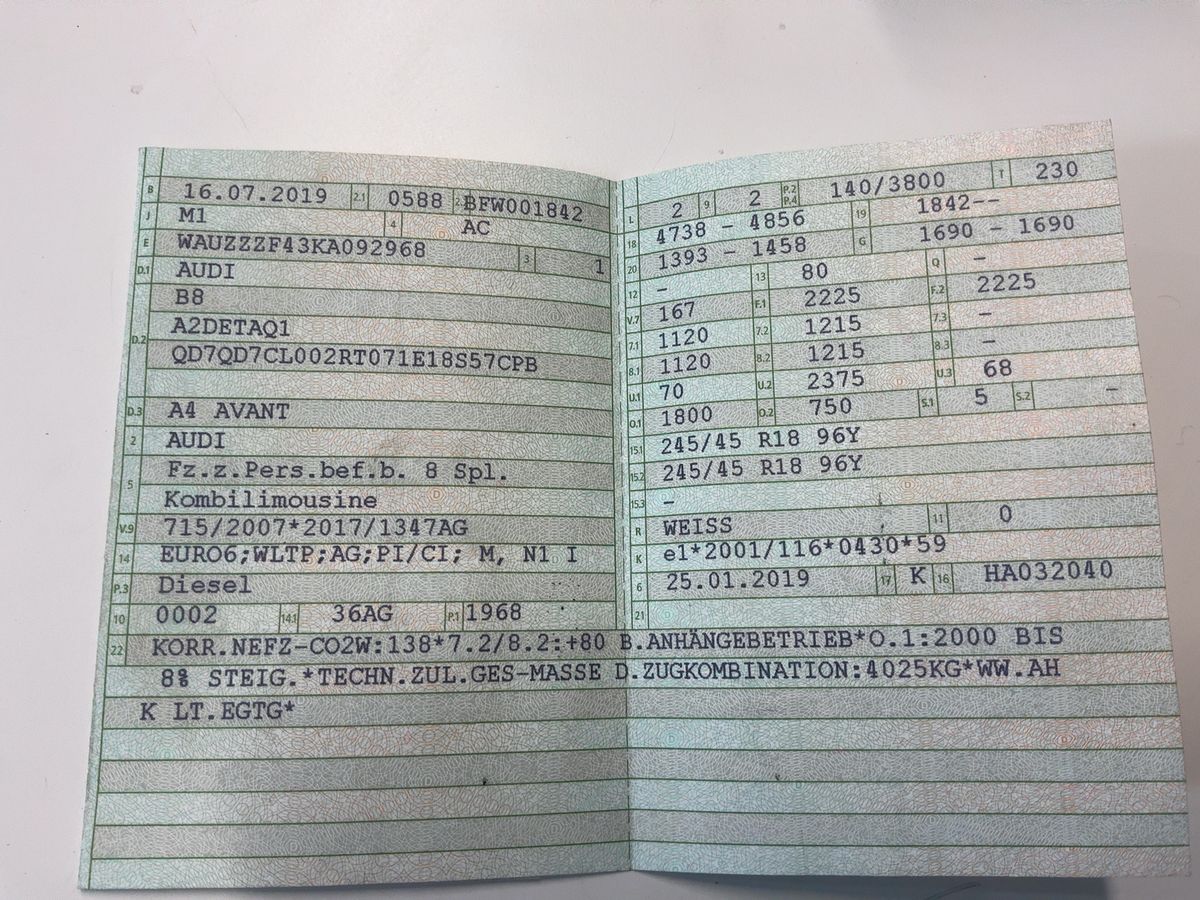 B 16.07.2019 2.1 0588 2. BFW001842
J M1 4 AC
E WAUZZZF43KA092968 3 1
D.1 AUDI
B8
D.2 A2DETAQ1
QD7QD7CL002RT071E18S57CPB
D.3 A4 AVANT
2 AUDI
5 Fz.z.Pers.bef.b. 8 Spl.
Kombilimousine
V.9 715/2007*2017/1347AG
14 EURO6;WLTP;AG;PI/CI; M, N1 I
P.3 Diesel
10 0002 14.1 36AG P.1 1968
L 2 9 2 P.2 P.4 140/3800 T 230
18 4738 - 4856 19 1842--
20 1393 - 1458 G 1690 - 1690
12 - 13 80 Q -
V.7 167 F.1 2225 F.2 2225
7.1 1120 7.2 1215 7.3 -
8.1 1120 8.2 1215 8.3 -
U.1 70 U.2 2375 U.3 68
O.1 1800 O.2 750 S.1 5 S.2 -
15.1 245/45 R18 96Y
15.2 245/45 R18 96Y
15.3 -
R WEISS 11 0
K e1*2001/116*0430*59
6 25.01.2019 17 K 16 HA032040
21
22 KORR.NEFZ-CO2W:138*7.2/8.2:+80 B.ANHÄNGEBETRIEB*O.1:2000 BIS
8% STEIG.*TECHN.ZUL.GES-MASSE D.ZUGKOMBINATION:4025KG*WW.AH
K LT.EGTG*